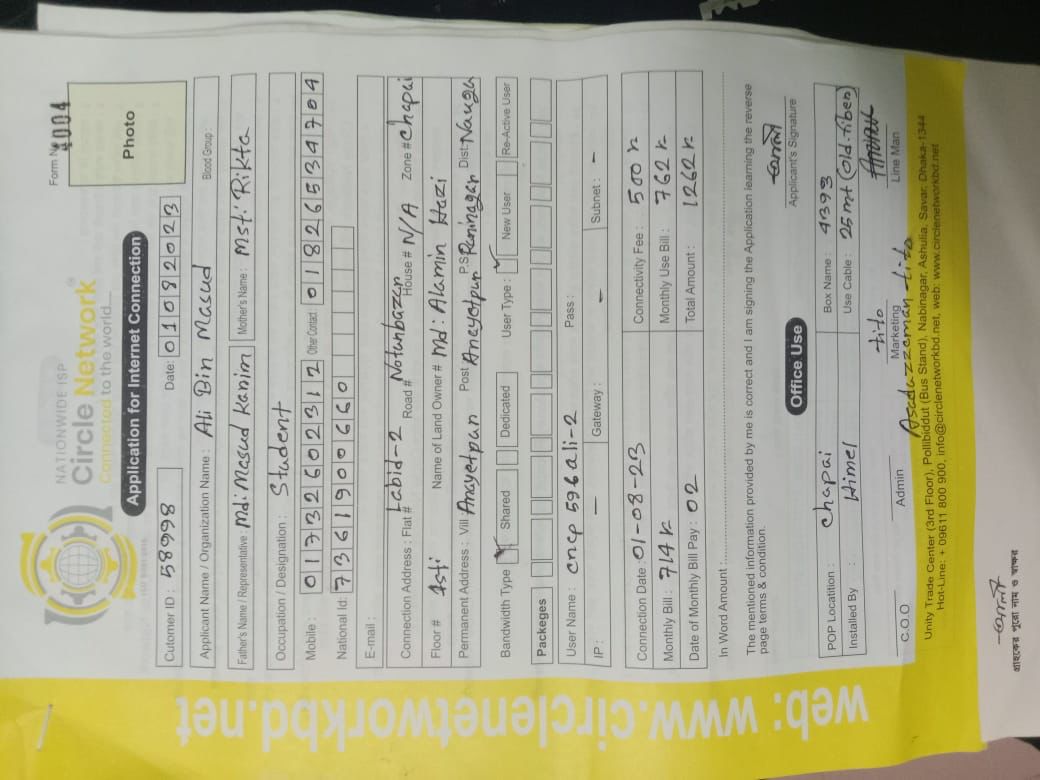 NATIONWIDE ISP
Circle Network
Connected to the world...
Form No
4004
Photo
Application for Internet Connection
Cutomer ID : 58998 Date: 01082023
Applicant Name / Organization Name : Ali Bin Masud Blood Group :
Father's Name / Representative : Md: Masud Karim Mother's Name : Mst: Rikta
Occupation / Designation : Student
Mobile : 01732602312 Other Contact 01826534704
National Id: 7361900660
E-mail :
Connection Address : Flat # Labid-2 Road # Notunbazar House # N/A Zone # Chapai
Floor # Name of Land Owner # Md: Alamin Hazi
Permanent Address : Vill Anayetpur Post Anayetpur P.S Raninagar Dist: Nauga
Bandwidth Type Shared Dedicated User Type : New User Re-Active User
Packeges
User Name : cncp 596ali-2 Pass :
IP : — Gateway : — Subnet : -
Connection Date : 01-08-23 Connectivity Fee : 500
Monthly Bill : 714 Monthly Use Bill : 762
Date of Monthly Bill Pay : 02 Total Amount : 1262
In Word Amount :
The mentioned information provided by me is correct and I am signing the Application learning the reverse
page terms & condition.
Applicant's Signature
Office Use
POP Locatition : Chapai Box Name : 4393
Installed By : Himel Use Cable : 25 mt (old fiber)
tito
C.O.O Admin Marketing Line Man
Asaduzzaman tito
Unity Trade Center (3rd Floor), Pollibiddut (Bus Stand), Nabinagar, Ashulia, Savar, Dhaka-1344
Hot-Line: + 09611 800 900, info@circlenetworkbd.net, web: www.circlenetworkbd.net
web: www.circlenetworkbd.net
গ্রাহকের পুরো নাম ও স্বাক্ষর